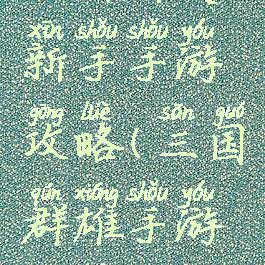 xīn shǒu shǒu yóu
新手手游
gōng lüè sān guó
攻略(三国
qún xióng shǒu yóu
群雄手游